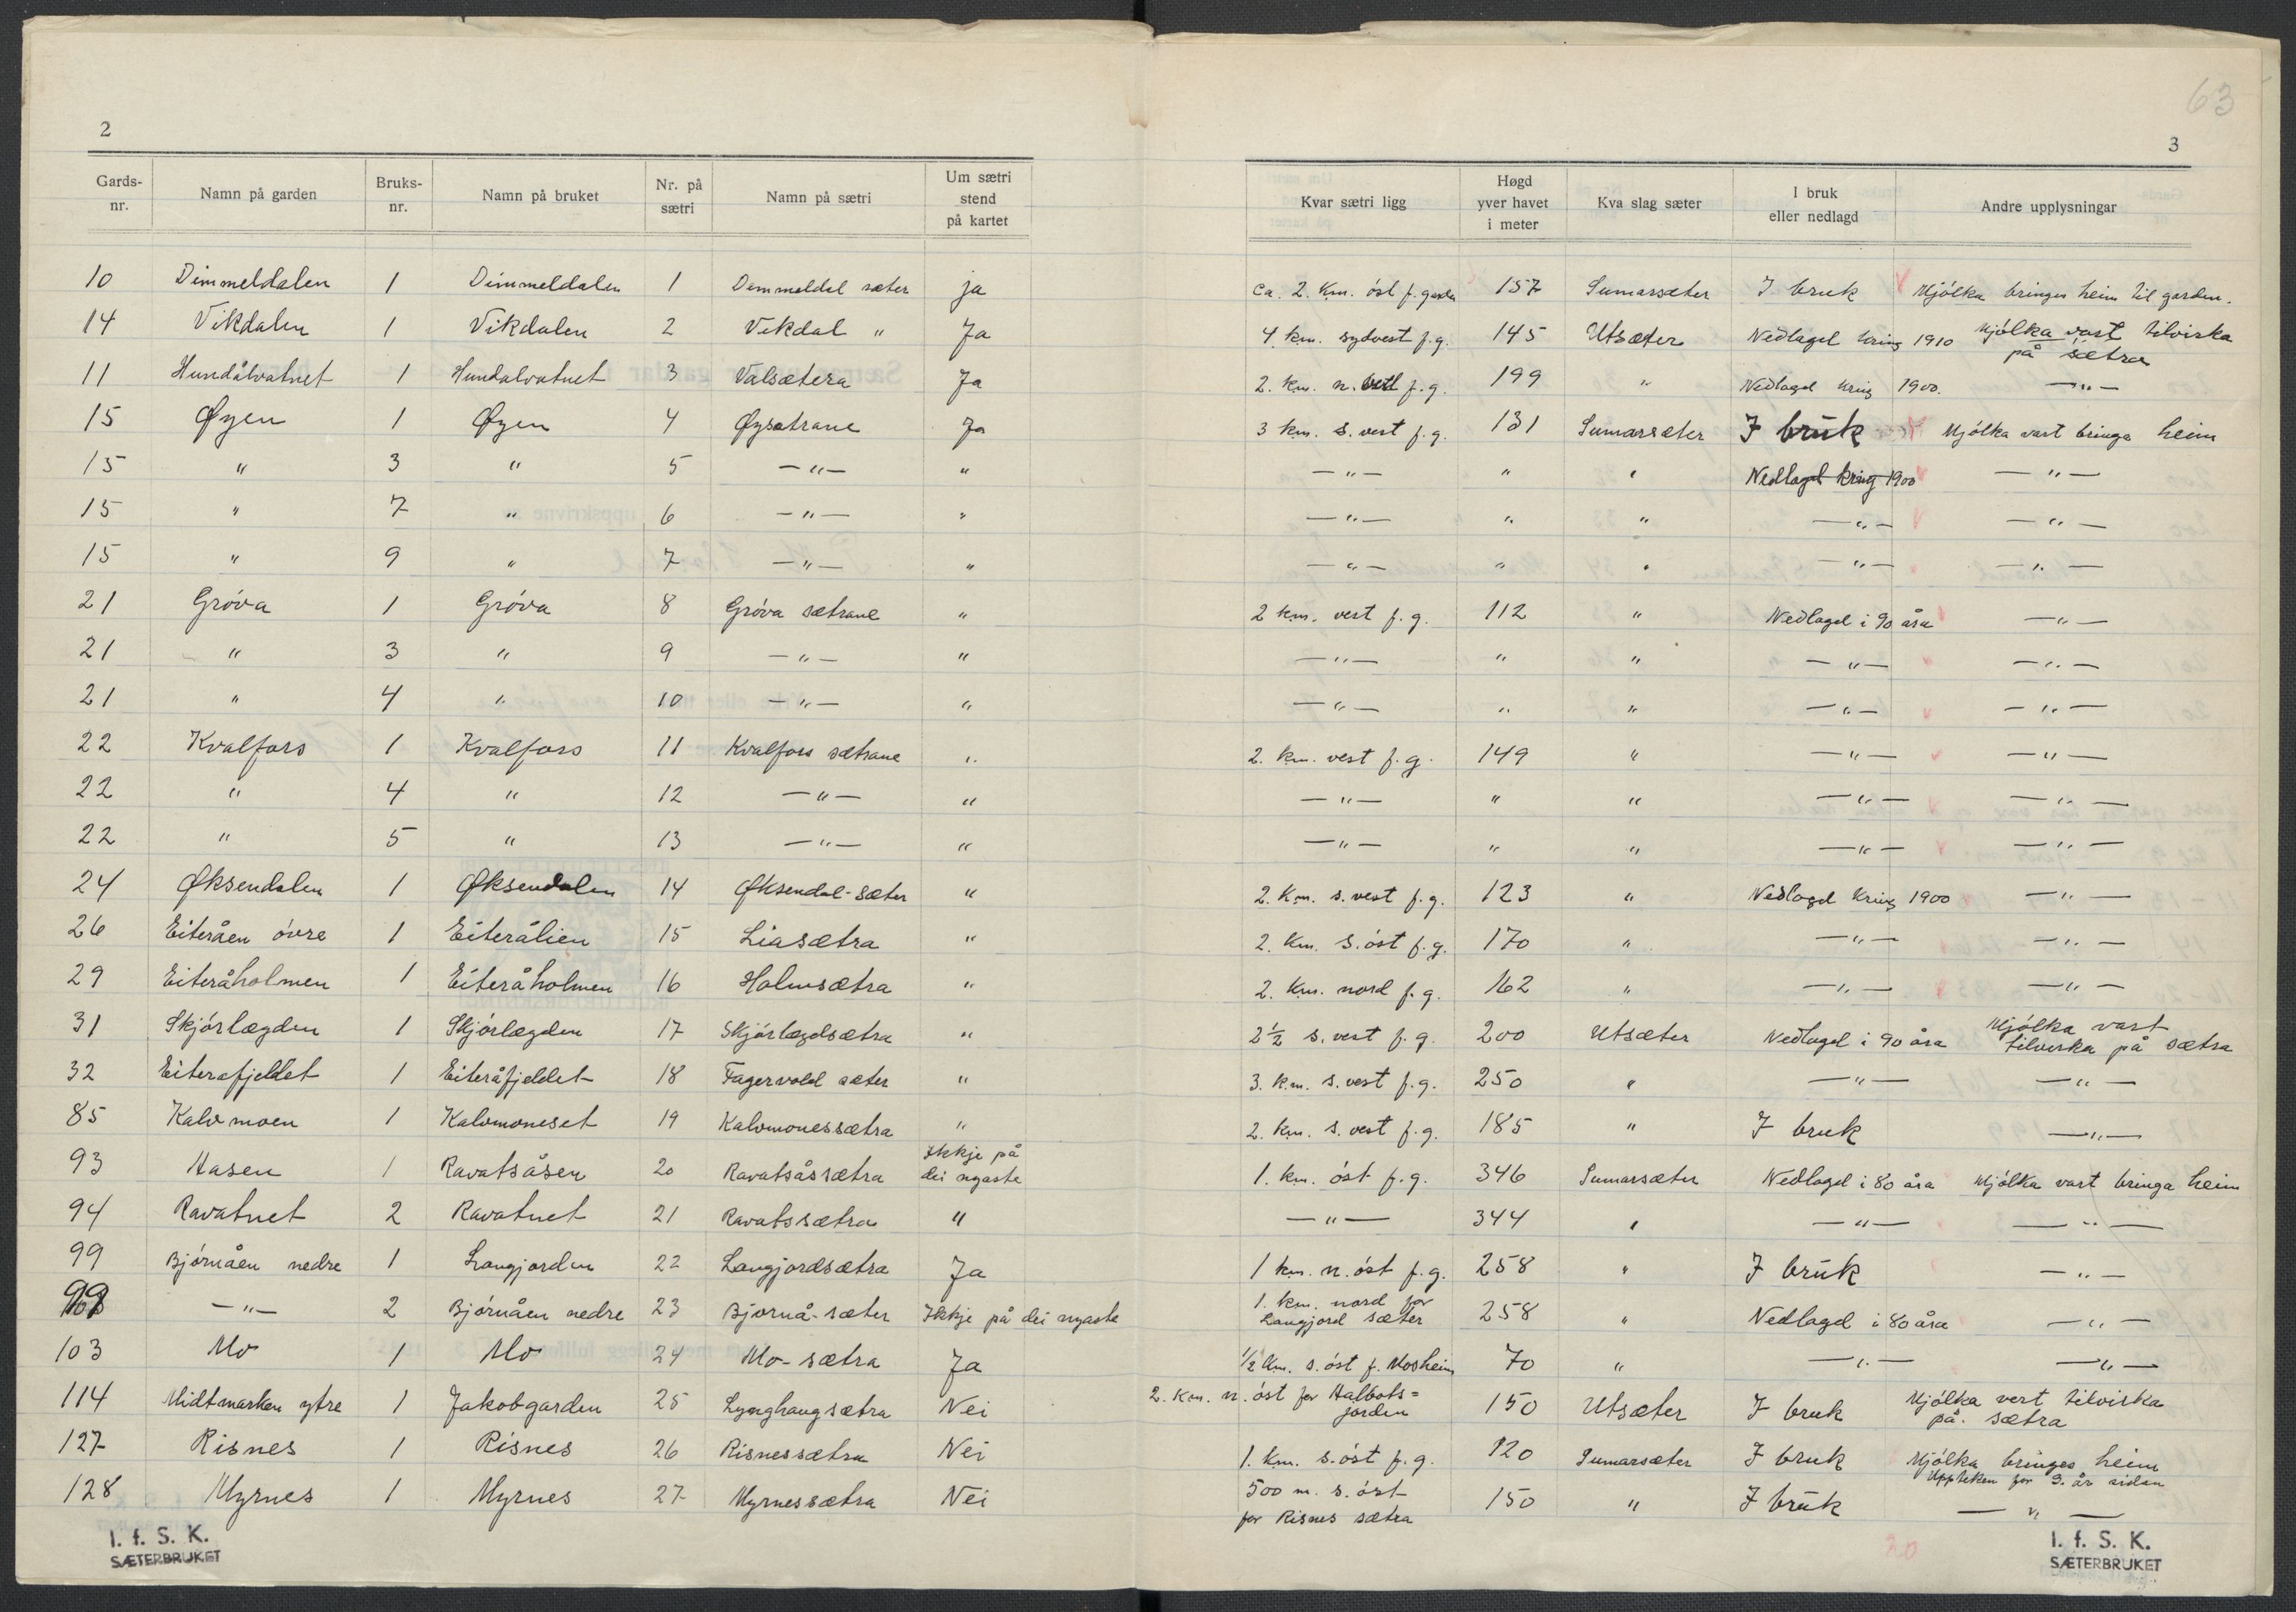 63
2
3
Gards-nr. | Namn på garden | Bruks-nr. | Namn på bruket | Nr. på sætri | Namn på sætri | Um sætri stend på kartet | Kvar sætri ligg | Høgd yver havet i meter | Kva slag sæter | I bruk eller nedlagd | Andre upplysningar
10 | Dimmeldalen | 1 | Dimmeldalen | 1 | Dimmeldal sæter | ja | ca. 2. km. öst f. garden | 157 | Sumarsæter | I bruk | Mjölka bringes heim til garden.
14 | Vikdalen | 1 | Vikdalen | 2 | Vikdal " | Ja | 4 km. sydvest f.g. | 145 | Utsæter | Nedlagd kring 1910 | Mjölka vart tilvirka på sætra
11 | Hundålvatnet | 1 | Hundalvatnet | 3 | Valsætera | Ja | 2. km. n. vest f.g. | 199 | " | Nedlagd kring 1900. | —"—
15 | Øyen | 1 | Øyen | 4 | Øysætrane | Ja | 3 km. s. vest f.g. | 131 | Sumarsæter | I bruk | Mjölka vart bringa heim
15 | " | 3 | " | 5 | —"— | " | —"— | " | " | Nedlagd kring 1900 | —"—
15 | " | 7 | " | 6 | —"— | " | —"— | " | " | —"— | —"—
15 | " | 9 | " | 7 | —"— | " | —"— | " | " | —"— | —"—
21 | Gröva | 1 | Gröva | 8 | Gröva sætrane | " | 2 km. vest f.g. | 112 | " | Nedlagd i 90 åra | —"—
21 | " | 3 | " | 9 | —"— | " | —"— | " | " | —"— | —"—
21 | " | 4 | " | 10 | —"— | " | —"— | " | " | —"— | —"—
22 | Kvalfors | 1 | Kvalfors | 11 | Kvalfors sætrane | " | 2. km. vest f.g. | 149 | " | —"— | —"—
22 | " | 4 | " | 12 | —"— | " | —"— | " | " | —"— | —"—
22 | " | 5 | " | 13 | —"— | " | —"— | " | " | —"— | —"—
24 | Øksendalen | 1 | Øksendalen | 14 | Øksendal-sæter | " | 2. km. s. vest f.g. | 123 | " | Nedlagd kring 1900 | —"—
26 | Eiteråen övre | 1 | Eiterålien | 15 | Liasætra | " | 2. km. s. öst f.g. | 170 | " | —"— | —"—
29 | Eiteråholmen | 1 | Eiteråholmen | 16 | Holmsætra | " | 2. km. nord f.g. | 162 | " | —"— | —"—
31 | Skjörlægden | 1 | Skjörlægden | 17 | Skjörlægdsætra | " | 2½ s. vest f.g. | 200 | Utsæter | Nedlagd i 90 åra | Mjölka vart tilvirka på sætra
32 | Eiterafjeldet | 1 | Eiteråfjeldet | 18 | Fagervold sæter | " | 3. km. s. vest f.g. | 250 | " | —"— | —"—
85 | Kalvmoen | 1 | Kalvmoneset | 19 | Kalvmonessætra | " | 2. km. s. vest f.g. | 185 | " | I bruk | —"—
93 | Aasen | 1 | Ravatsåsen | 20 | Ravatsåssætra | Ikkje på dei nyaste | 1. km. öst f.g. | 346 | Sumarsæter | Nedlagd i 80 åra | Mjölka vart bringa heim
94 | Ravatnet | 2 | Ravatnet | 21 | Ravatssætra | " | —"— | 344 | " | —"— | —"—
99 | Björnåen nedre | 1 | Langjorden | 22 | Langjordsætra | Ja | 1 km. n. öst f.g. | 258 | " | I bruk | —"—
99 | —"— | 2 | Björnåen nedre | 23 | Björnå-sæter | Ikkje på dei nyaste | 1. km. nord for Langjord sæter | 258 | " | Nedlagd i 80 åra | —"—
103 | Mo | 1 | Mo | 24 | Mo-sætra | Ja | ½ km. s. öst f. Mosheim | 70 | " | —"— | —"—
114 | Midtmarken ytre | 1 | Jakobgarden | 25 | Lynghaugsætra | Nei | 2. km. n. öst for Halbots=jorden | 150 | Utsæter | I bruk | Mjölka vert tilvirka på sætra
127 | Risnes | 1 | Risnes | 26 | Risnessætra | Nei | 1. km. s. öst f.g. | 120 | Sumarsæter | I bruk | Mjölka bringes heim
128 | Myrnes | 1 | Myrnes | 27 | Myrnessætra | Nei | 500 m. s. öst for Risnes sætra | 150 | " | I bruk | Uppteken for 3. år sidan —"—
20
I. f. S. K.
SÆTERBRUKET
I. f. S. K.
SÆTERBRUKET